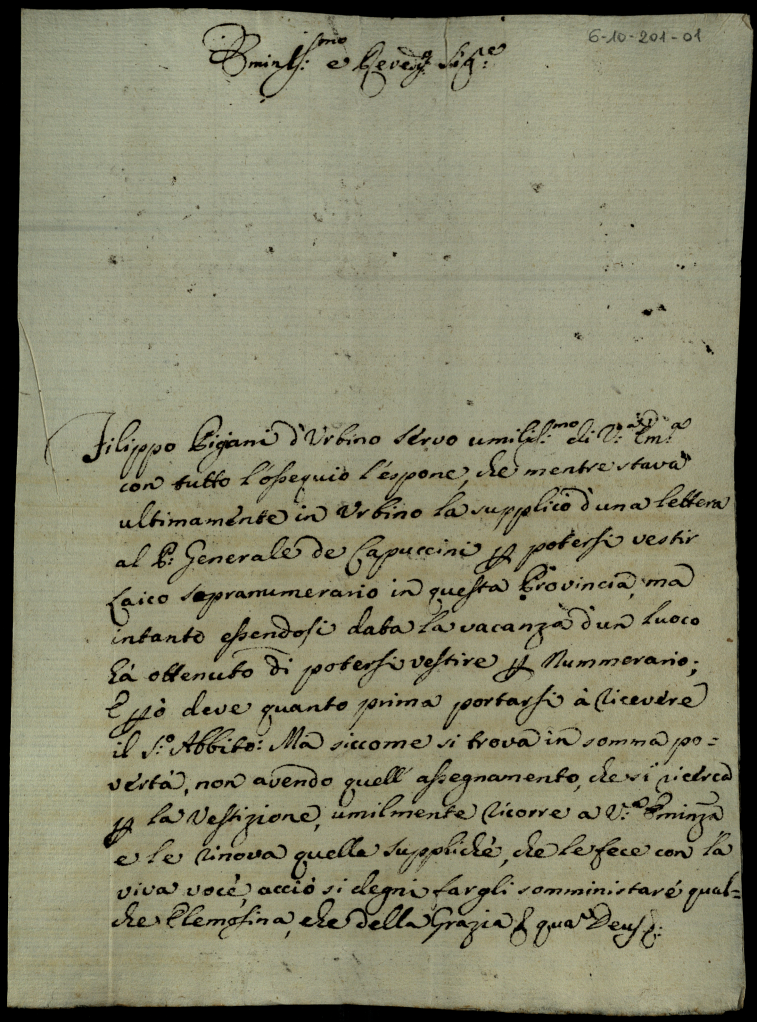 6-10-201-01
Eminss:mo e Revd: Sigre:
Filippo Pigani d'Urbino servo umiliss:mo di V:a Em:a
con tutto l'ossequio l'espone, che mentre stava
ultimamente in Urbino la supplicò d'una lettera
al P: Generale de Capuccini p potersi vestir
Laico sopranumerario in questa Provincia, ma
intanto essendosi data la vacanza d'un luoco
hà ottenuto di potersi vestire p Nummerario;
E pò deve quanto prima portarsi à ricevere
il S:o Abbito: Ma siccome si trova in somma po=
vertà, non avendo quell' assegnamento, che si ricerca
p la Vestizione, umilmente ricorre a V:a Eminza
e le rinova quelle suppliche, che le fece con la
viva voce, acciò si degni fargli somministraré qual=
che Elemosina, che della Grazia & qua Deus &: